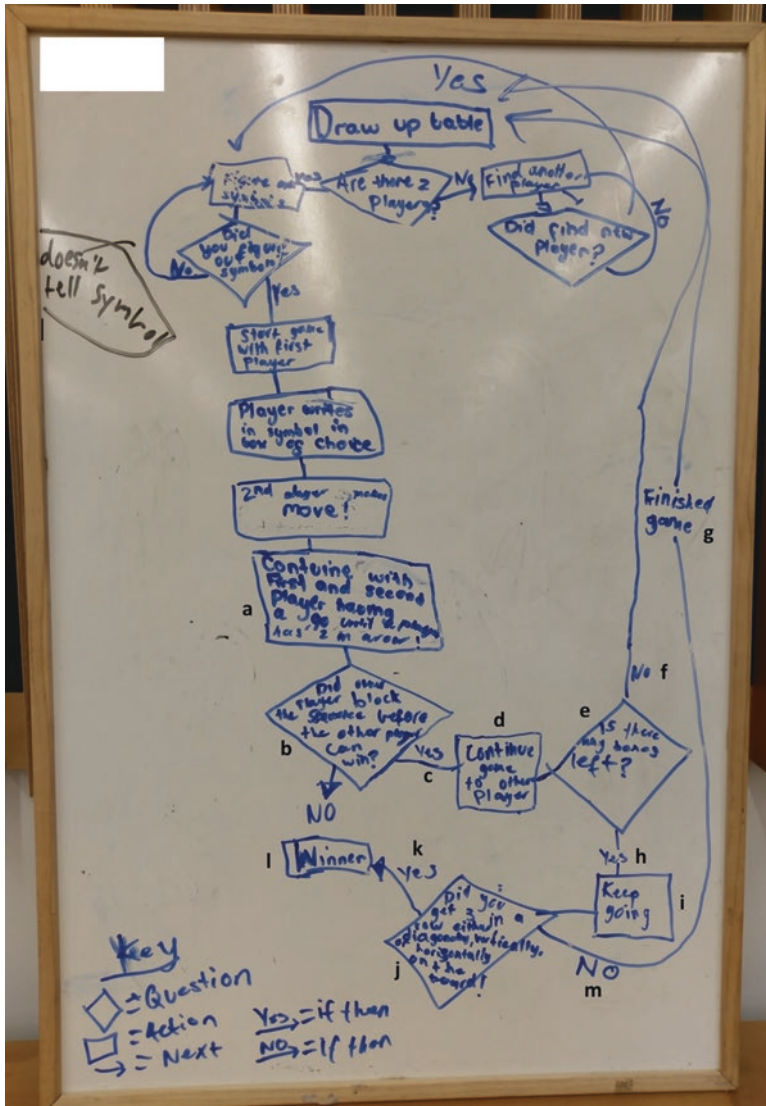 Yes
Draw up table
Are there 2
Players?
Yes
No
Find another
player
Did find new
Player?
No
Figure out
symbols
Did
you figure
out
symbol?
No
Yes
doesn't
tell symbol
Start game
with first
Player
Player writes
in symbol in
box of choice
2nd player makes
move!
a
Contuing with
First and second
Player having
a go until a player
has 2 in a row!
Did other
Player block
the sequence before
the other player
can
win?
b
Yes
c
NO
d
Continue
game
to other
Player
e
Is there
any boxes
left?
No
f
Finished
game
g
Yes
h
Keep
going
i
Did you
get 3 in a
row either
diagonally, vertically,
or horizontally
on the
board?
j
Yes
k
l
Winner
NO
m
Key
= Question
= Action
= Next
Yes = if then
NO = If then